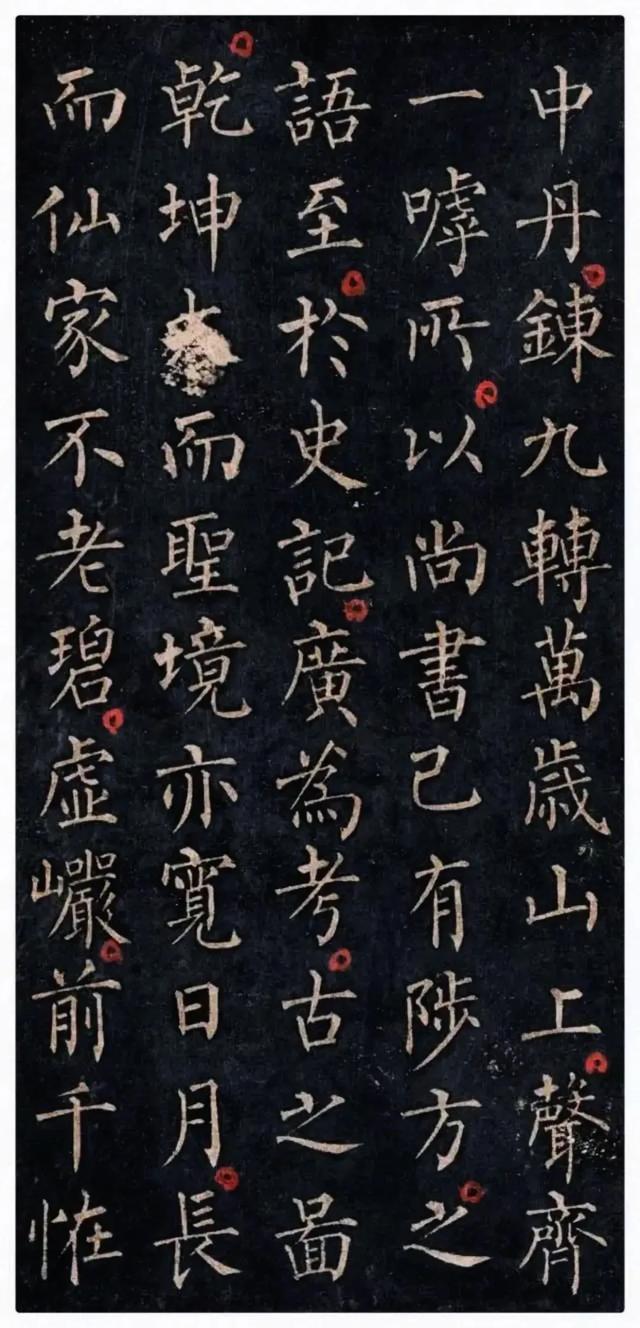 中丹鍊九轉萬歲山上聲齊
一嘑所以尚書已有陟方之
語至於史記廣為考古之啚
乾坤而聖境亦寬日月長
而仙家不老碧虛巖前千恠